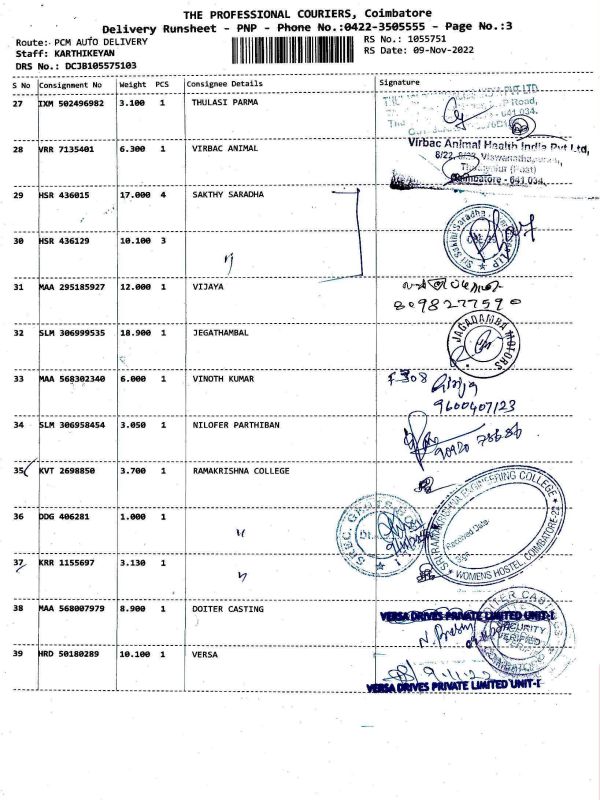 THE PROFESSIONAL COURIERS, Coimbatore
Delivery Runsheet - PNP - Phone No.:0422-3505555 - Page No.:3
Route: PCM AUTO DELIVERY
RS No.: 1055751
Staff: KARTHIKEYAN
RS Date: 09-Nov-2022
DRS No.: DCJB105575103
S No Consignment No Weight PCS Consignee Details Signature
27 IXM 502496982 3.100 1 THULASI PARMA
28 VRR 7135401 6.300 1 VIRBAC ANIMAL
Virbac Animal Health India Pvt Ltd,
6/22, Viswanathapuram,
(Post)
Coimbatore - 641 034.
29 HSR 436015 17.000 4 SAKTHY SARADHA
30 HSR 436129 10.100 3 〃
31 MAA 295185927 12.000 1 VIJAYA
8098277590
32 SLM 306999535 18.900 1 JEGATHAMBAL
JAGADAMBA MOTORS
33 MAA 568302340 6.000 1 VINOTH KUMAR
F 308
9600407123
34 SLM 306958454 3.050 1 NILOFER PARTHIBAN
35 KVT 2698850 3.700 1 RAMAKRISHNA COLLEGE
SRI RAMAKRISHNA ENGINEERING COLLEGE
WOMENS HOSTEL, COIMBATORE-22
Received Date
36 DDG 406281 1.000 1 〃
37 KRR 1155697 3.130 1 〃
38 MAA 568007979 8.900 1 DOITER CASTING
VERSA DRIVES PRIVATE LIMITED UNIT-I
DOITER CASTINGS
SECURITY
VERIFIED
COIMBATORE
39 HRD 50180289 10.100 1 VERSA
9.11.22
VERSA DRIVES PRIVATE LIMITED UNIT-I